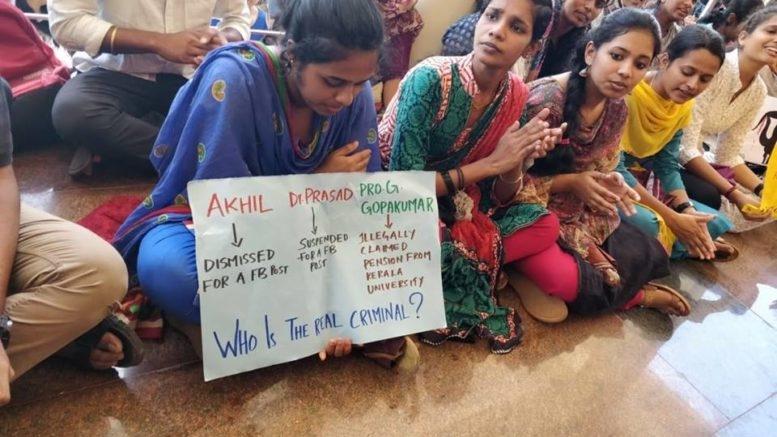 AKHIL
DISMISSED
FOR A FB POST
Dr. PRASAD
SUSPENDED
FOR A FB
POST
PRO. G.
GOPAKUMAR
ILLEGALLY
CLAIMED
PENSION FROM
KERALA
UNIVERSITY
WHO IS THE REAL CRIMINAL?